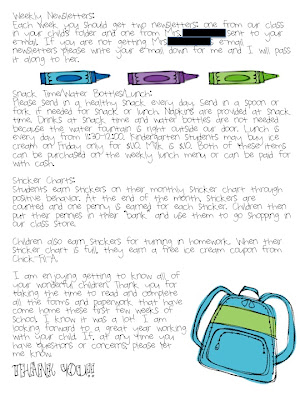 Weekly Newsletters:
Each week you should get two newsletters: one from our class
in your child's folder and one from Mrs. sent to your
e-mail. If you are not getting Mrs. e-mail
newsletters please write your e-mail down for me and I will pass
it along to her.
Snack Time/Water Bottles/Lunch:
Please send in a healthy snack every day. Send in a spoon or
fork if needed for snack or lunch. Napkins are provided at snack
time. Drinks at snack time and water bottles are not needed
because the water fountain is right outside our door. Lunch is
every day from 11:30-12:00. Kindergarten Students may buy ice
cream on Friday only for $1.10. Milk is $.10. Both of these items
can be purchased on the weekly lunch menu or can be paid for
with cash.
Sticker Charts:
Students earn stickers on their monthly sticker chart through
positive behavior. At the end of the month, stickers are
counted and one penny is earned for each sticker. Children then
put their pennies in their "bank" and use them to go shopping in
our class store.
Children also earn stickers for turning in homework. When their
sticker chart is full, they earn a free ice cream coupon from
Chick-Fil-A.
I am enjoying getting to know all of
your wonderful children. Thank you for
taking the time to read and complete
all the forms and paperwork that have
come home these first few weeks of
school. I know it was a lot! I am
looking forward to a great year working
with your child. If at any time you
have questions or concerns please let
me know.
THANK YOU!!